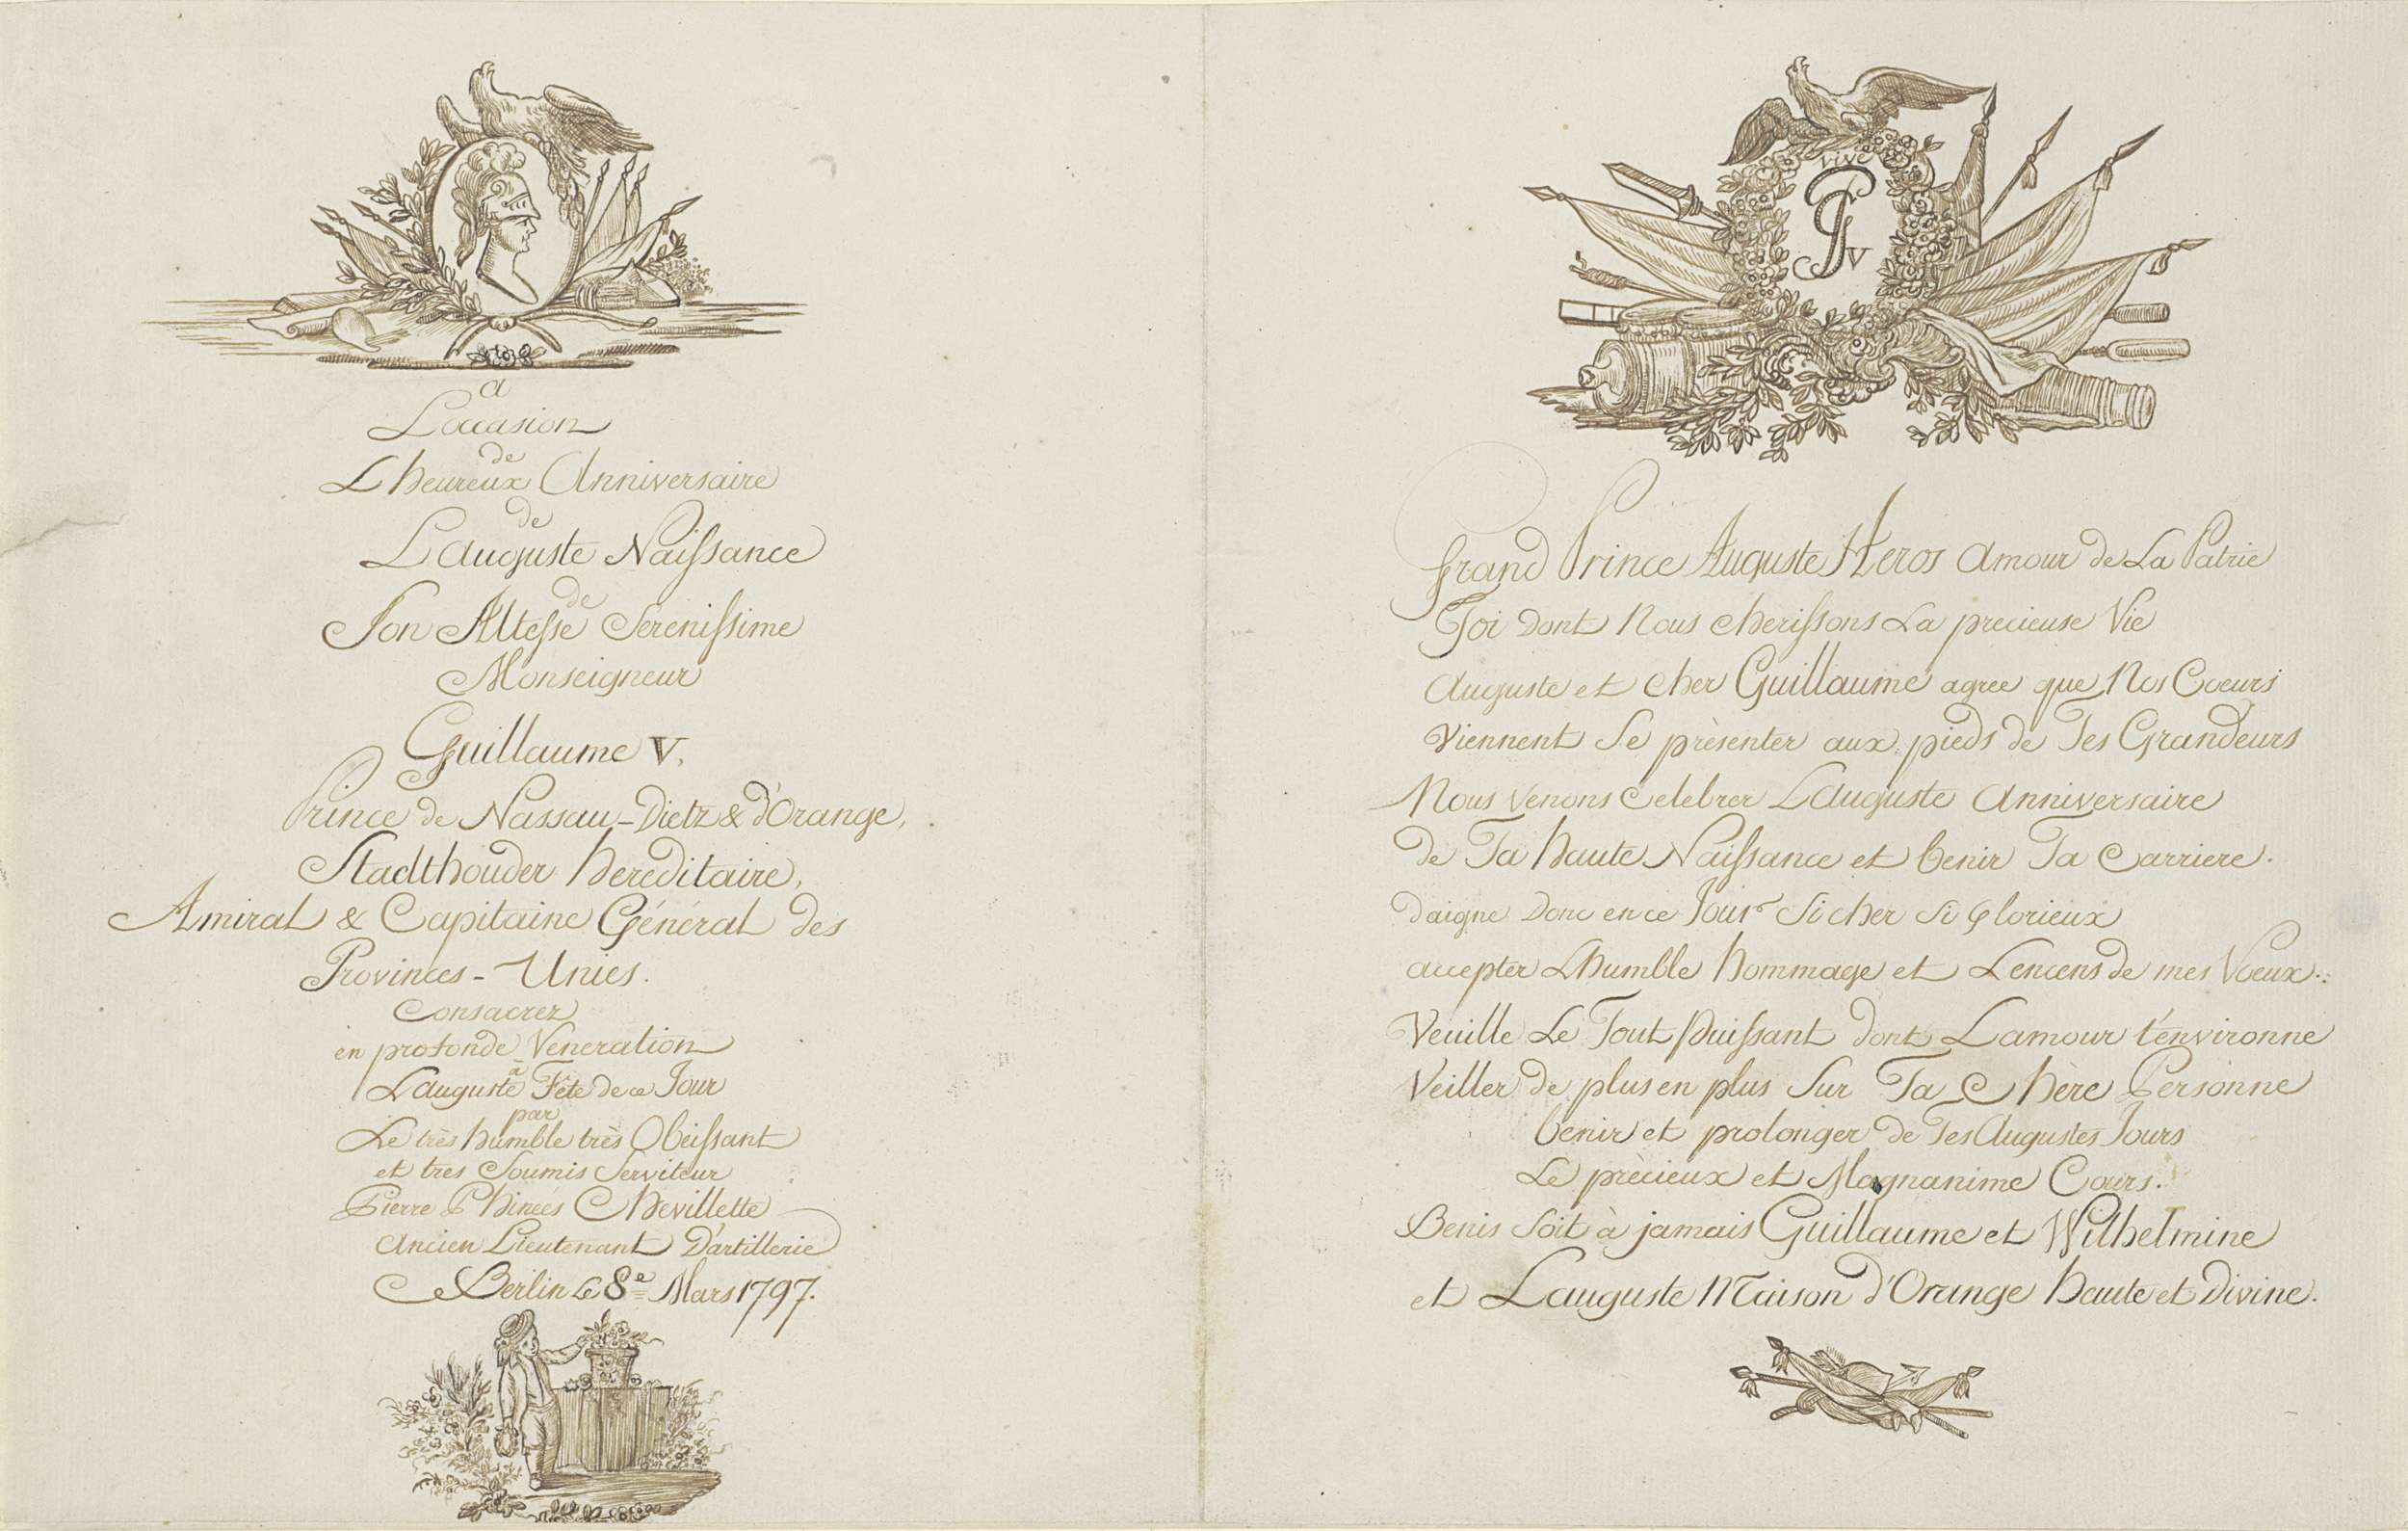 a
L'occasion
de
L'heureux Anniversaire
de
L'auguste Naissance
de
Son Altesse Serenissime
Monseigneur
Guillaume V,
Prince de Nassau-Dietz & d'Orange,
Stadthouder hereditaire,
Amiral & Capitaine Général des
Provinces-Unies.
Consacrez
en profonde Veneration
a
L'auguste Fête de ce Jour
par
Le très humble très Obeissant
et tres Soumis Serviteur
Pierre Phineés Chevillette
Ancien Lieutenant D'artillerie
Berlin Le 8e Mars 1797.
vive
V
Grand Prince Auguste Heros Amour de La Patrie
Toi dont Nous cherissons La precieuse Vie
Auguste et cher Guillaume agree que Nos Coeurs
Viennent Se prèsenter aux pieds de Tes Grandeurs
Nous venons Celebrer L'Auguste Anniversaire
de Ta haute Naissance et benir Ta Carriere.
Daigne Donc en ce Jour Si cher Si Glorieux
accepter L'humble hommage et L'encens de mes Voeux.
Veuille Le Tout Puissant dont L'amour t'environne
Veiller de plus en plus Sur Ta Chère Personne
benir et prolonger de Tes Augustes Jours
Le prècieux et Magnanime Cours.
Benis Soit à jamais Guillaume et Wilhelmine
et L'auguste Maison d'Orange haute et Divine.